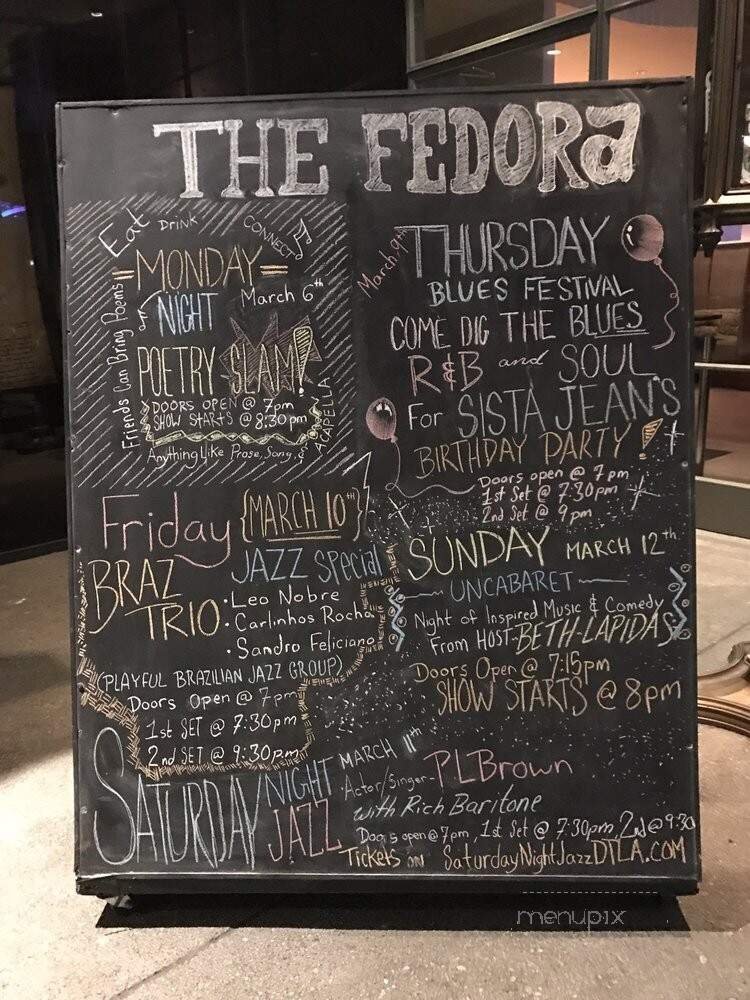 THE FEDORA
Eat
DRINK
CONNECT
=MONDAY=
NIGHT
March 6th
POETRY SLAM!
DOORS OPEN @ 7pm
SHOW STARTS @ 8:30pm
Anything Like Prose, Song,
ACAPELLA
Friends Can Bring Poems
March 9th
THURSDAY
BLUES FESTIVAL
COME DIG THE BLUES
R&B and SOUL
For SISTA JEAN'S
BIRTHDAY PARTY!
Doors open @ 7 pm
1st Set @ 7:30pm
2nd Set @ 9pm
Friday {MARCH 10th}
JAZZ Special
BRAZ
TRIO
• Leo Nobre
• Carlinhos Rocha
• Sandro Feliciano
(PLAYFUL BRAZILIAN JAZZ GROUP)
Doors Open @ 7pm
1st SET @ 7:30pm
2nd SET @ 9:30pm
SUNDAY MARCH 12th
UNCABARET
Night of Inspired Music & Comedy
From HOST-BETH-LAPIDAS
Doors Open @ 7:15pm
SHOW STARTS @ 8pm
SATURDAY NIGHT JAZZ
MARCH 11th
Actor/Singer-PLBrown
with Rich Baritone
Doors open @ 7pm, 1st Set @ 7:30pm, 2nd @ 9:30
Tickets on SaturdayNightJazzDTLA.COM
menupix